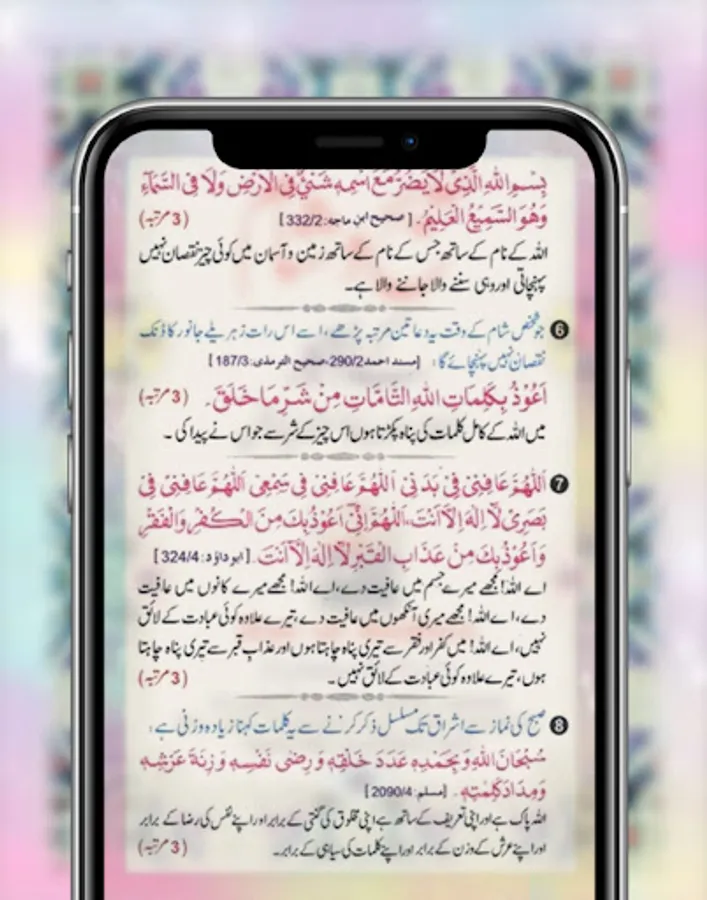 بِسْمِ اللهِ الَّذِیْ لَا یَضُرُّ مَعَ اسْمِهٖ شَیْئٌ فِی الْاَرْضِ وَلَا فِی السَّمَآءِ
وَهُوَ السَّمِیْعُ الْعَلِیْمُ۔ [ صحیح ابن ماجہ: 332/2 ] (3 مرتبہ)
اللہ کے نام کے ساتھ جس کے نام کے ساتھ زمین و آسمان میں کوئی چیز نقصان نہیں
پہنچاتی اور وہی سننے والا جاننے والا ہے۔
6 جو شخص شام کے وقت یہ دعا تین مرتبہ پڑھے، اسے اس رات زہریلے جانور کا ڈنک
نقصان نہیں پہنچائے گا: [مسند احمد 290/2، صحیح الترمذی: 187/3]
اَعُوْذُ بِکَلِمَاتِ اللهِ التَّامَّاتِ مِنْ شَرِّ مَا خَلَقَ۔ (3 مرتبہ)
میں اللہ کے کامل کلمات کی پناہ پکڑتا ہوں اس چیز کے شر سے جو اس نے پیدا کی۔
7 اَللّٰهُمَّ عَافِنِیْ فِیْ بَدَنِیْ اَللّٰهُمَّ عَافِنِیْ فِیْ سَمْعِیْ اَللّٰهُمَّ عَافِنِیْ فِیْ
بَصَرِیْ لَا اِلٰهَ اِلَّا اَنْتَ، اَللّٰهُمَّ اِنِّیْ اَعُوْذُ بِكَ مِنَ الْکُفْرِ وَالْفَقْرِ
وَاَعُوْذُ بِكَ مِنْ عَذَابِ الْقَبْرِ لَا اِلٰهَ اِلَّا اَنْتَ۔ [ابوداؤد: 324/4 ]
اے اللہ! مجھے میرے جسم میں عافیت دے، اے اللہ! مجھے میرے کانوں میں عافیت
دے، اے اللہ! مجھے میری آنکھوں میں عافیت دے، تیرے علاوہ کوئی عبادت کے لائق
نہیں، اے اللہ! میں کفر اور فقر سے تیری پناہ چاہتا ہوں اور عذاب قبر سے تیری پناہ چاہتا
ہوں، تیرے علاوہ کوئی عبادت کے لائق نہیں۔ (3 مرتبہ)
8 صبح کی نماز سے اشراق تک مسلسل ذکر کرنے سے یہ کلمات کہنا زیادہ وزنی ہے:
سُبْحَانَ اللهِ وَبِحَمْدِهٖ عَدَدَ خَلْقِهٖ وَرِضٰی نَفْسِهٖ وَزِنَةَ عَرْشِهٖ
وَمِدَادَ کَلِمٰتِهٖ۔ [مسلم: 2090/4]
اللہ پاک ہے اور اپنی تعریف کے ساتھ ہے اپنی مخلوق کی گنتی کے برابر اور اپنے نفس کی رضا کے برابر
اور اپنے عرش کے وزن کے برابر اور اپنے کلمات کی سیاہی کے برابر۔ (3 مرتبہ)